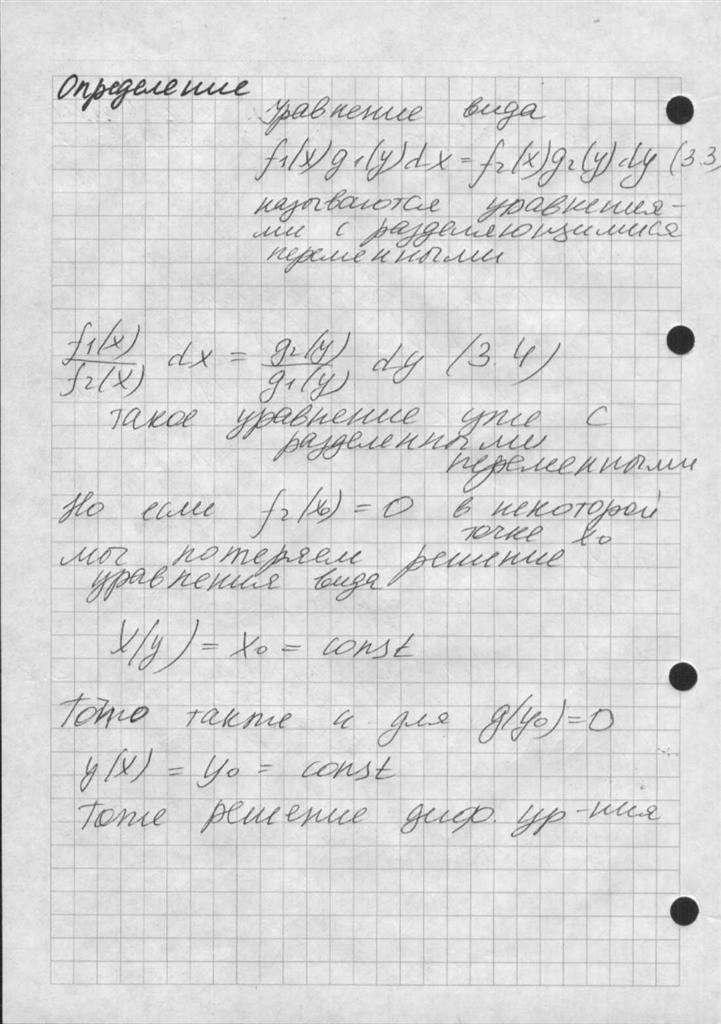 Определение
уравнение вида
f₁(x)g₁(y)dx = f₂(x)g₂(y)dy (3.3)
называются уравнения-
ми с разделяющимися
переменными
f₁(x)/f₂(x) dx = g₂(y)/g₁(y) dy (3.4)
такое уравнение уже с
разделенными
переменными
Но если f₂(x₀) = 0 в некоторой
точке x₀
мы потеряем решение
уравнения вида
X(y) = x₀ = const
также и для g(y₀)=0
y(x) = y₀ = const
Тоже решение диф. ур-ния